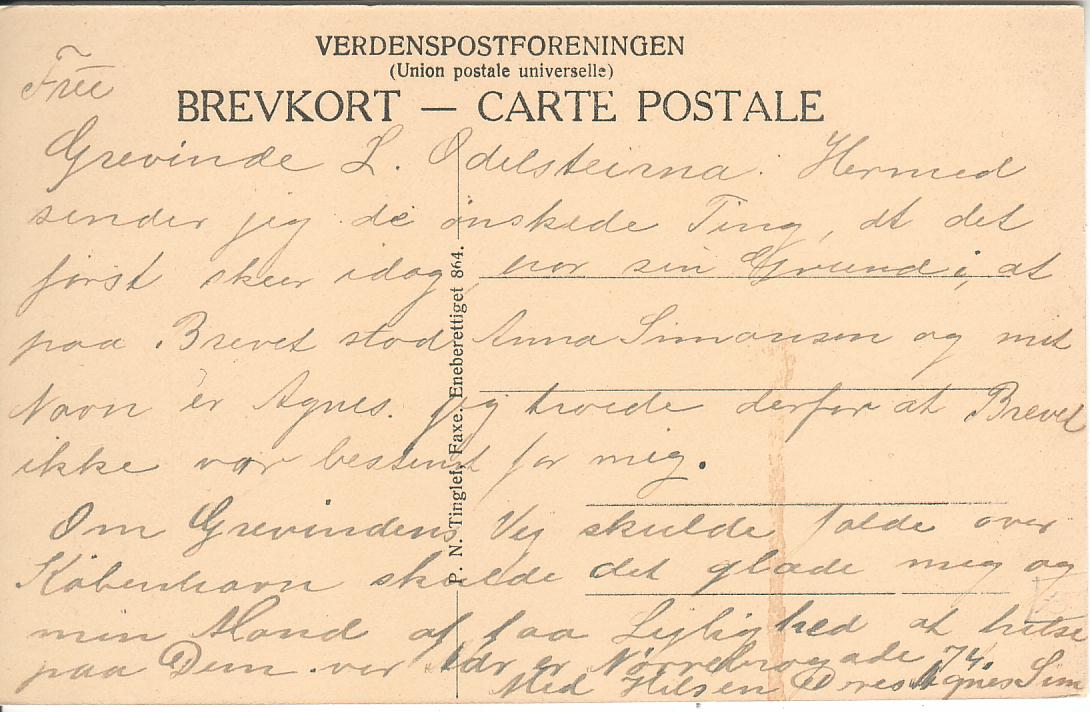 VERDENSPOSTFORENINGEN
(Union postale universelle)
BREVKORT — CARTE POSTALE
P. N. Tinglef, Faxe. Eneberettiget 864.
Frue
Grevinde L. Odelsteirna. Hermed
sender jeg de ønskede Ting, at det
først skeer idag har sin Grund i, at
paa Brevet stod Anna Simonsen og mit
Navn er Agnes. jeg troede derfor at Brevet
ikke var bestemt for mig.
Om Grevindens Vej skulde falde over
København skulde det glæde meg og
min Mand at faa Lejlighed at hilse
paa Dem. vor Adr er Nørrebrogade 74.
Med Hilsen Deres Agnes Sim